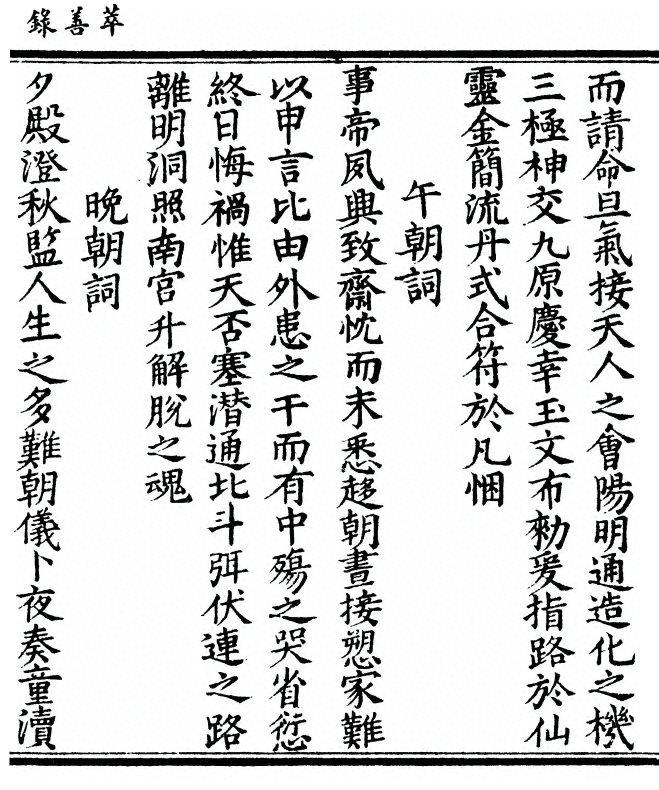 萃善錄
而請命旦氣接天人之會陽明通造化之機
三極神交九原慶幸玉文布勑爰指路於仙
靈金簡流丹式合符於凡悃
午朝詞
事帝夙興致齋忱而未悉趍朝晝接愬家難
以申言比由外患之干而有中殤之哭省愆
終日悔禍惟天否塞潜通北斗弭伏連之路
離明洞照南宮升解脫之魂
晚朝詞
夕殿澄秋監人生之多難朝儀卜夜奏童瀆